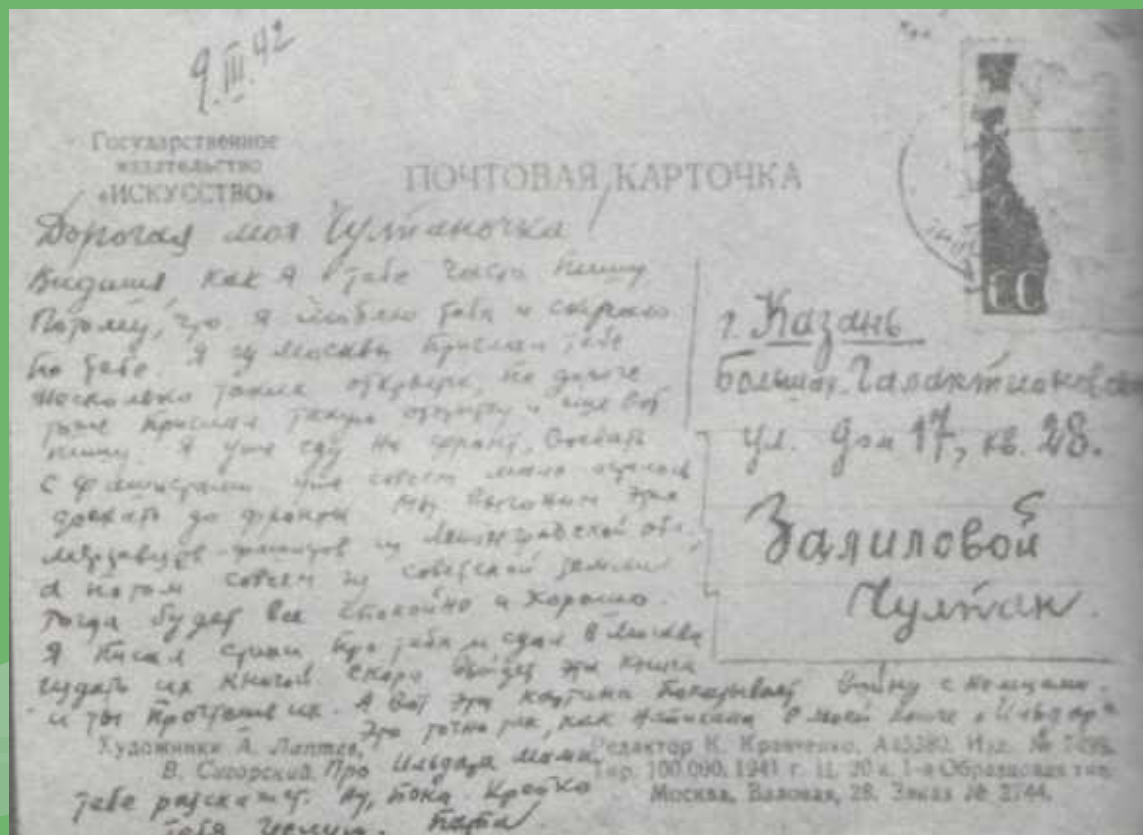 9.III.42
Государственное
издательство
«ИСКУССТВО»
ПОЧТОВАЯ КАРТОЧКА
Дорогая моя Чулпаночка!
Видишь, как я тебе часто пишу
Потому, что я люблю тебя и скучаю
по тебе. Я из Москвы прислал тебе
несколько таких открыток, по дороге
тоже прислал такую открытку и еще вот
пишу. Я уже еду на фронт, воевать
с фашистами уже совсем мало осталось
доехать до фронта Мы выгоним этих
мерзавцев-фашистов из Ленинградской обл.,
а потом совсем из советской земли
Тогда будет все спокойно и хорошо.
Я писал стихи про тебя и сдал в Москве
издать их книгой. Скоро выйдет эта книга
и ты прочтешь их. А вот эта картина показывает войну с немцами.
Это точно так, как написано в моей книге „Ильдар"
Про Ильдара мама
тебе расскажет. Ну, пока Крепко
тебя целую. Папа
г. Казань
Большая Галактионовская
ул. дом 17, кв. 28.
Залиловой
Чулпан.
Художники А. Лаптев,
В. Сигорский.
Редактор К. Кравченко.
Тир. 100.000. 1941 г. Ц. 20 к. 1-я Образцовая тип.
Москва, Валовая, 28. Заказ № 2744.